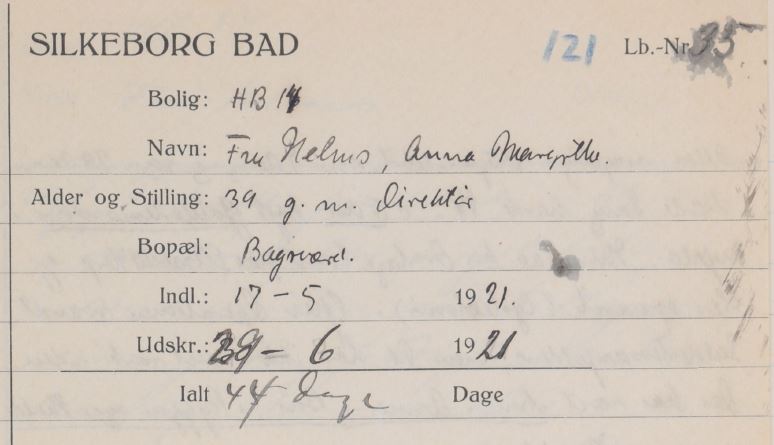 SILKEBORG BAD 121 Lb.-Nr 35
Bolig: HB 14
Navn: Fru Helms, Anna Margrethe.
Alder og Stilling: 39 g. m. Direktør
Bopæl: Bagsværd.
Indl.: 17 - 5 1921.
Udskr.: 29 - 6 1921
Ialt 44 dage Dage